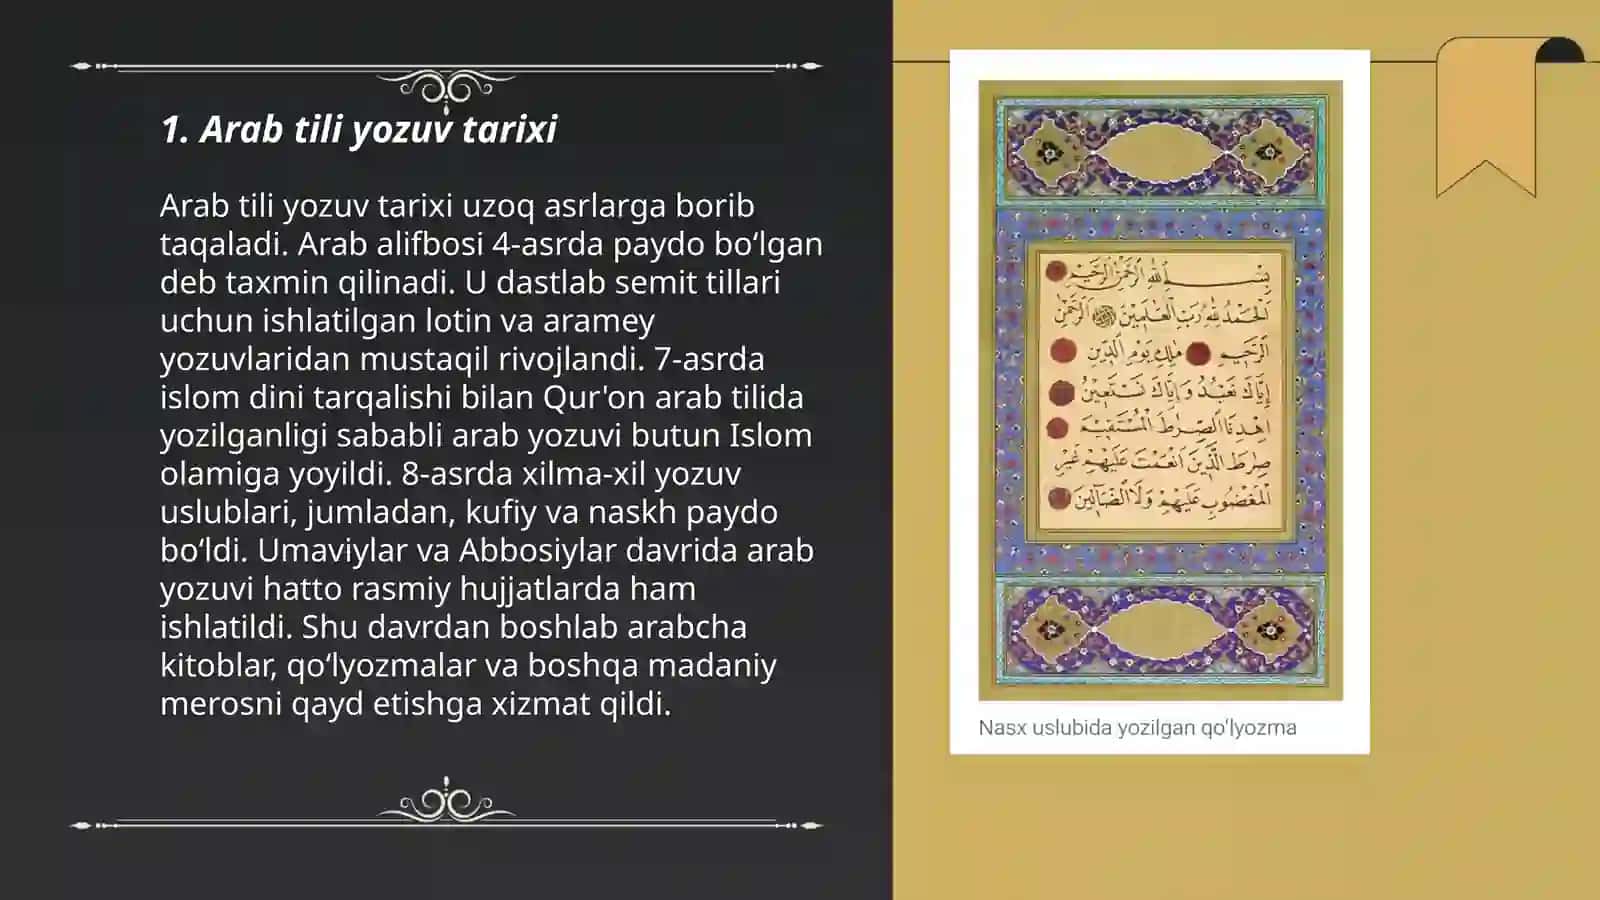 1. Arab tili yozuv tarixi
Arab tili yozuv tarixi uzoq asrlarga borib
taqaladi. Arab alifbosi 4-asrda paydo bo‘lgan
deb taxmin qilinadi. U dastlab semit tillari
uchun ishlatilgan lotin va aramey
yozuvlaridan mustaqil rivojlandi. 7-asrda
islom dini tarqalishi bilan Qur'on arab tilida
yozilganligi sababli arab yozuvi butun Islom
olamiga yoyildi. 8-asrda xilma-xil yozuv
uslublari, jumladan, kufiy va naskh paydo
bo‘ldi. Umaviylar va Abbosiylar davrida arab
yozuvi hatto rasmiy hujjatlarda ham
ishlatildi. Shu davrdan boshlab arabcha
kitoblar, qo‘lyozmalar va boshqa madaniy
merosni qayd etishga xizmat qildi.
بِسْمِ اللهِ الرَّحْمٰنِ الرَّحِيمِ
اَلْحَمْدُ لِلّٰهِ رَبِّ الْعٰلَمِينَ الرَّحْمٰنِ
الرَّحِيمِ مٰلِكِ يَوْمِ الدِّينِ
اِيَّاكَ نَعْبُدُ وَاِيَّاكَ نَسْتَعِينُ
اِهْدِنَا الصِّرَاطَ الْمُسْتَقِيمَ
صِرَاطَ الَّذِينَ اَنْعَمْتَ عَلَيْهِمْ غَيْرِ
الْمَغْضُوبِ عَلَيْهِمْ وَلَا الضَّالِّينَ
Nasx uslubida yozilgan qo‘lyozma